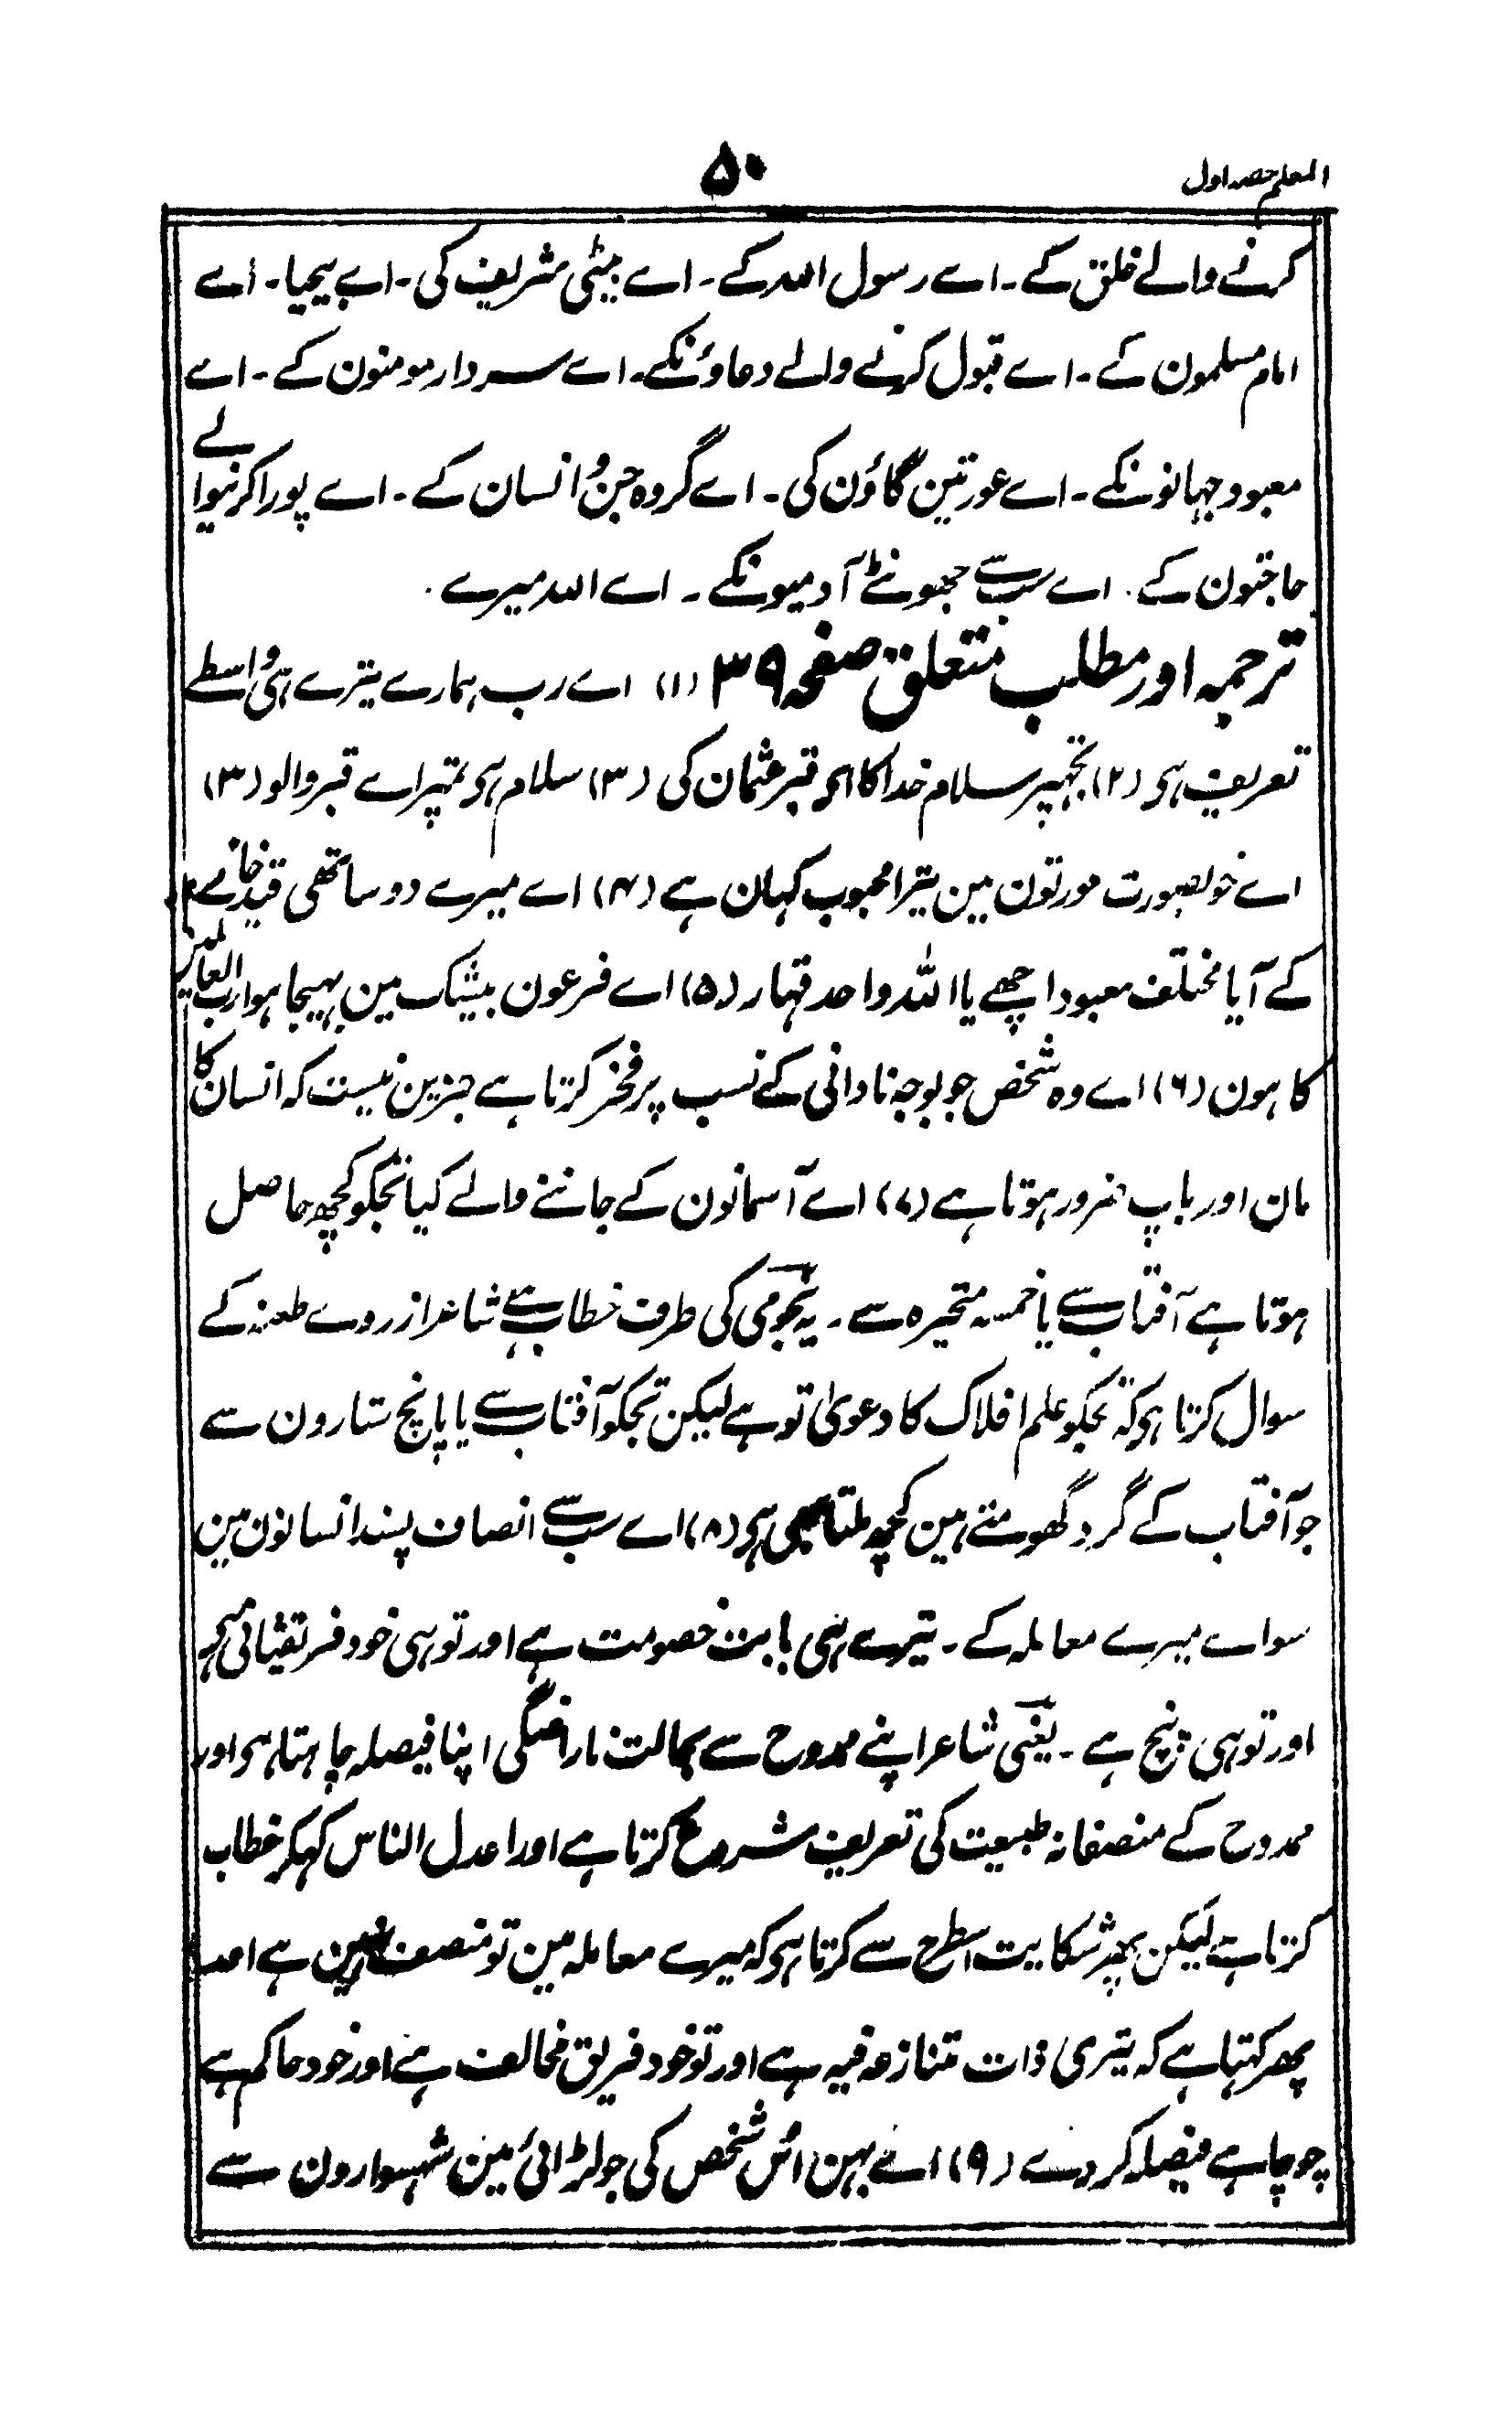 المعلم حصہ اول
۵۰
کرنے والے خلق کے۔ اے رسول اللہ کے۔ اے بیٹی شریف کی۔ اے یحییا۔ اے
امام مسلمون کے۔ اے قبول کرنے والے دعاؤنکے۔ اے سردار مومنون کے۔ اے
معبود جہانونکے۔ اے عورتین گاؤن کی۔ اے گروہ جن و انسان کے۔ اے پورا کرنیوالے
حاجتون کے۔ اے سب سے جھونٹے آدمیونکے۔ اے اللہ میرے۔
ترجمہ اور مطلب متعلق صفحہ ۳۹ (۱) اے رب ہمارے تیرے ہی واسطے
تعریف ہی (۲) تجہپر سلام خدا کا اے قبر عثمان کی (۳) سلام ہی تمپر اے قبر والو (۳)
اے خوبصورت عورتون مین تیرا محبوب کہان ہے (۴) اے میرے دو ساتھی قیدخانے
کے آیا مختلف معبود اچھے یا اللہ واحد قہار (۵) اے فرعون بیشک مین بہیجا ہوا رب العالمین
کا ہون (۶) اے وہ شخص جو بوجہ نادانی کے نسب پر فخر کرتا ہے جزین نیست کہ انسان کا
مان اور باپ ضرور ہوتا ہے (۷) اے آسمانون کے جاننے والے کیا تجکو کچھ حاصل
ہوتا ہے آفتاب سے یا خمسہ متحیرہ سے۔ یہ نجومی کی طرف خطاب ہے شاعر از روے طعنہ کے
سوال کرتا ہی کہ تجکو علم افلاک کا دعویٰ تو ہے لیکن تجکو آفتاب سے یا پانچ ستارون سے
جو آفتاب کے گرد گھومتے ہین کچھ ملتا بھی ہی (۸) اے سب سے انصاف پسند انسانون مین
سواے میرے معاملہ کے۔ تیرے ہی بابت خصومت ہے اور تو ہی خود فریق ثانی ہی
اور تو ہی پنچ ہے۔ یعنی شاعر اپنے ممدوح سے بحالت ناراضگی اپنا فیصلہ چاہتا ہی اور
ممدوح کے منصفانہ طبیعت کی تعریف شروع کرتا ہے اور اعدل الناس کہکر خطاب
کرتا ہے لیکن پھر شکایت اسطح سے کرتا ہی کہ میرے معاملہ مین تو منصف نہین ہے اور
پھر کہتا ہے کہ تیری ذات متنازعہ فیہ ہے اور تو خود فریق مخالف ہے اور خود حاکم ہے
جو چاہے فیصلہ کر دے (۹) اے بہن اس شخص کی جو لڑائی مین شہسوارون سے